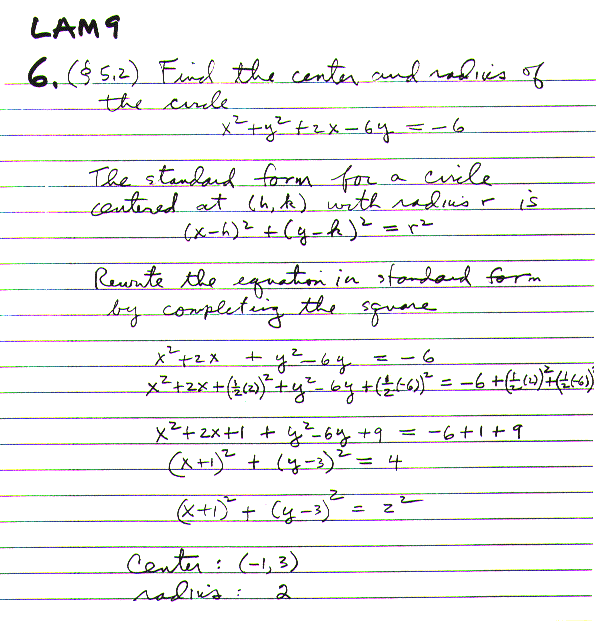 LAM 9
6. (§ 5.2) Find the center and radius of
the circle
x²+y²+2x-6y = -6
The standard form for a circle
centered at (h,k) with radius r is
(x-h)² + (y-k)² = r²
Rewrite the equation in standard form
by completing the square
x²+2x + y²-6y = -6
x²+2x+(½(2))²+y²-6y+(½(-6))² = -6+(½(2))²+(½(-6))²
x²+2x+1 + y²-6y+9 = -6+1+9
(x+1)² + (y-3)² = 4
(x+1)² + (y-3)² = 2²
Center : (-1,3)
radius : 2